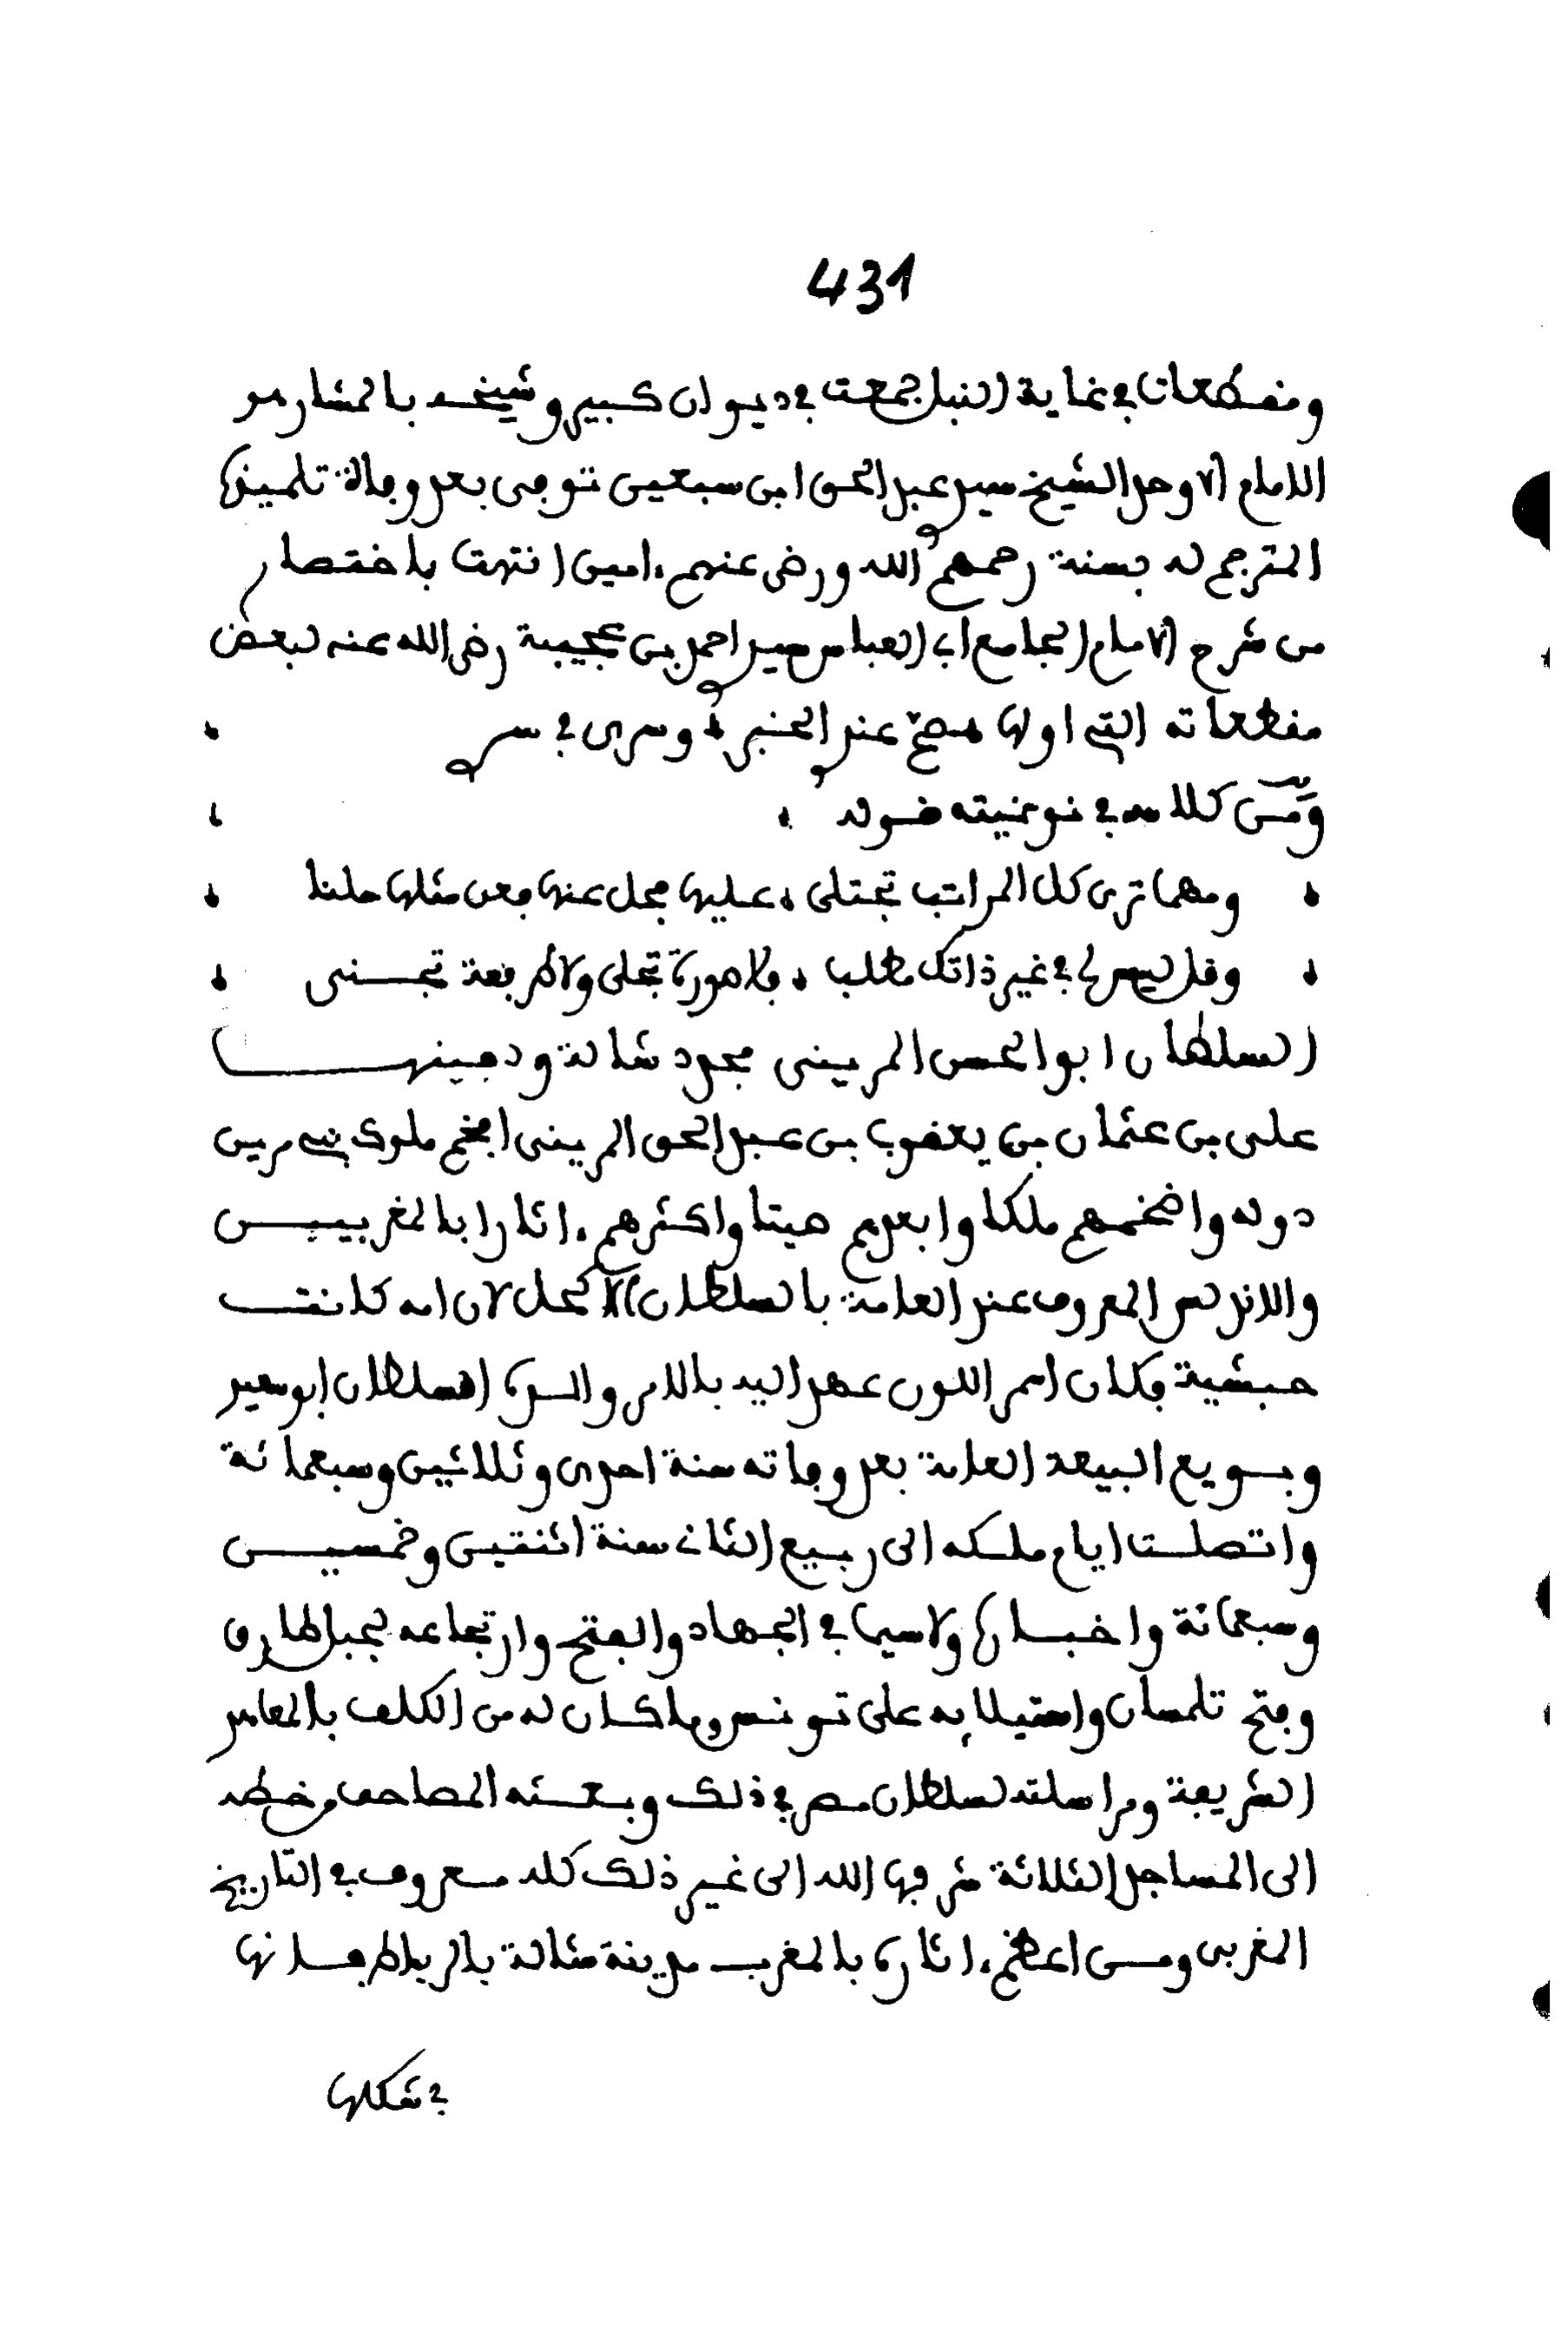 431
ومقطعات في غاية النبل جمعت في ديوان كبير وشيخه بالمشار هو
الامام الاوحد الشيخ سيد عبد الحق ابن سبعين توفى بعد وفاة تلميذه
المترجم له بسنة رحمهم الله ورضى عنهم ءامين انتهت باختصار
من شرح الامام الجامع ابي العباس سيد احمد بن عجيبة رضى الله عنه لبعض
مقطعاته التي اولها صح عند الخبر وسرى في سر
ومن كلامه في نونيته قوله
ومهما ترى كل المراتب تجتلى عليها فحل عنها فعن مثلها حلنا
وقل ليس لي في غير ذاتك مطلب فلا صورة تجلى ولا طرفة تجنى
السلطان ابو الحسن المرينى مجدد شالة ودفينها
على بن عثمان بن يعقوب بن عبد الحق المرينى افخم ملوك بني مرين
دوله واضخمهم ملكا وابعدهم صيتا واكثرهم ءاثارا بالمغربين
والاندلس المعروف عند العامة بالسلطان الاكحل لان امه كانت
حبشية فكان اسمر اللون عهد اليه بالامر والده السلطان ابو سعيد
وبويع البيعة العامة بعد وفاته سنة احدى وثلاثين وسبعمائة
واتصلت ايام ملكه الى ربيع الثاني سنة اثنتين وخمسين
وسبعمائة واخباره ولاسيما في الجهاد والفتح وارتجاعه لجبل طارق
وفتح تلمسان واستيلايه على تونس وما كان له من الكلف بالمقابر
الشريفة ومراسلته لسلطان مصر في ذلك وبعثه المصاحف بخطه
الى المساجد الثلاثة شرفها الله الى غير ذلك كله معروف في التاريخ
المغربى ومن اعظم ءاثاره بالمغرب مدينة شالة بالرباط فانها
في شكلها